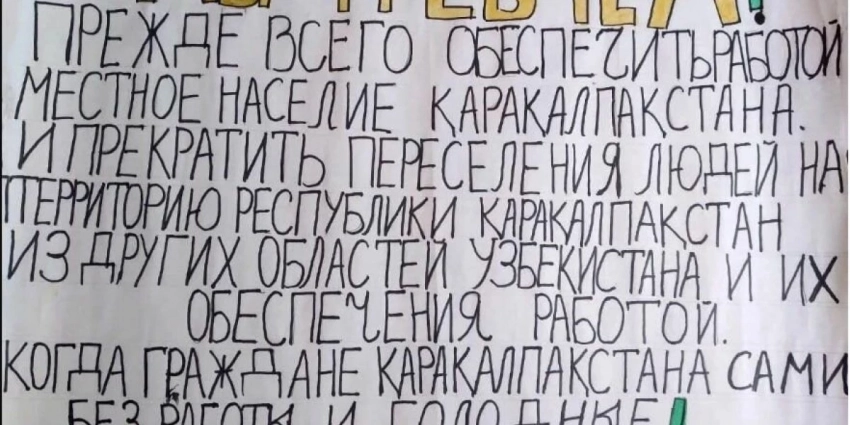 ПРЕЖДЕ ВСЕГО ОБЕСПЕЧИТЬ РАБОТОЙ
МЕСТНОЕ НАСЕЛИЕ ҚАРАҚАЛПАҚСТАНА.
И ПРЕКРАТИТЬ ПЕРЕСЕЛЕНИЯ ЛЮДЕЙ НА
ТЕРРИТОРИЮ РЕСПУБЛИКИ ҚАРАҚАЛПАҚСТАН
ИЗ ДРУГИХ ОБЛАСТЕЙ УЗБЕКИСТАНА И ИХ
ОБЕСПЕЧЕНИЯ РАБОТОЙ.
КОГДА ГРАЖДАНЕ ҚАРАҚАЛПАҚСТАНА САМИ
БЕЗ РАБОТЫ И ГОЛОДНЫЕ!